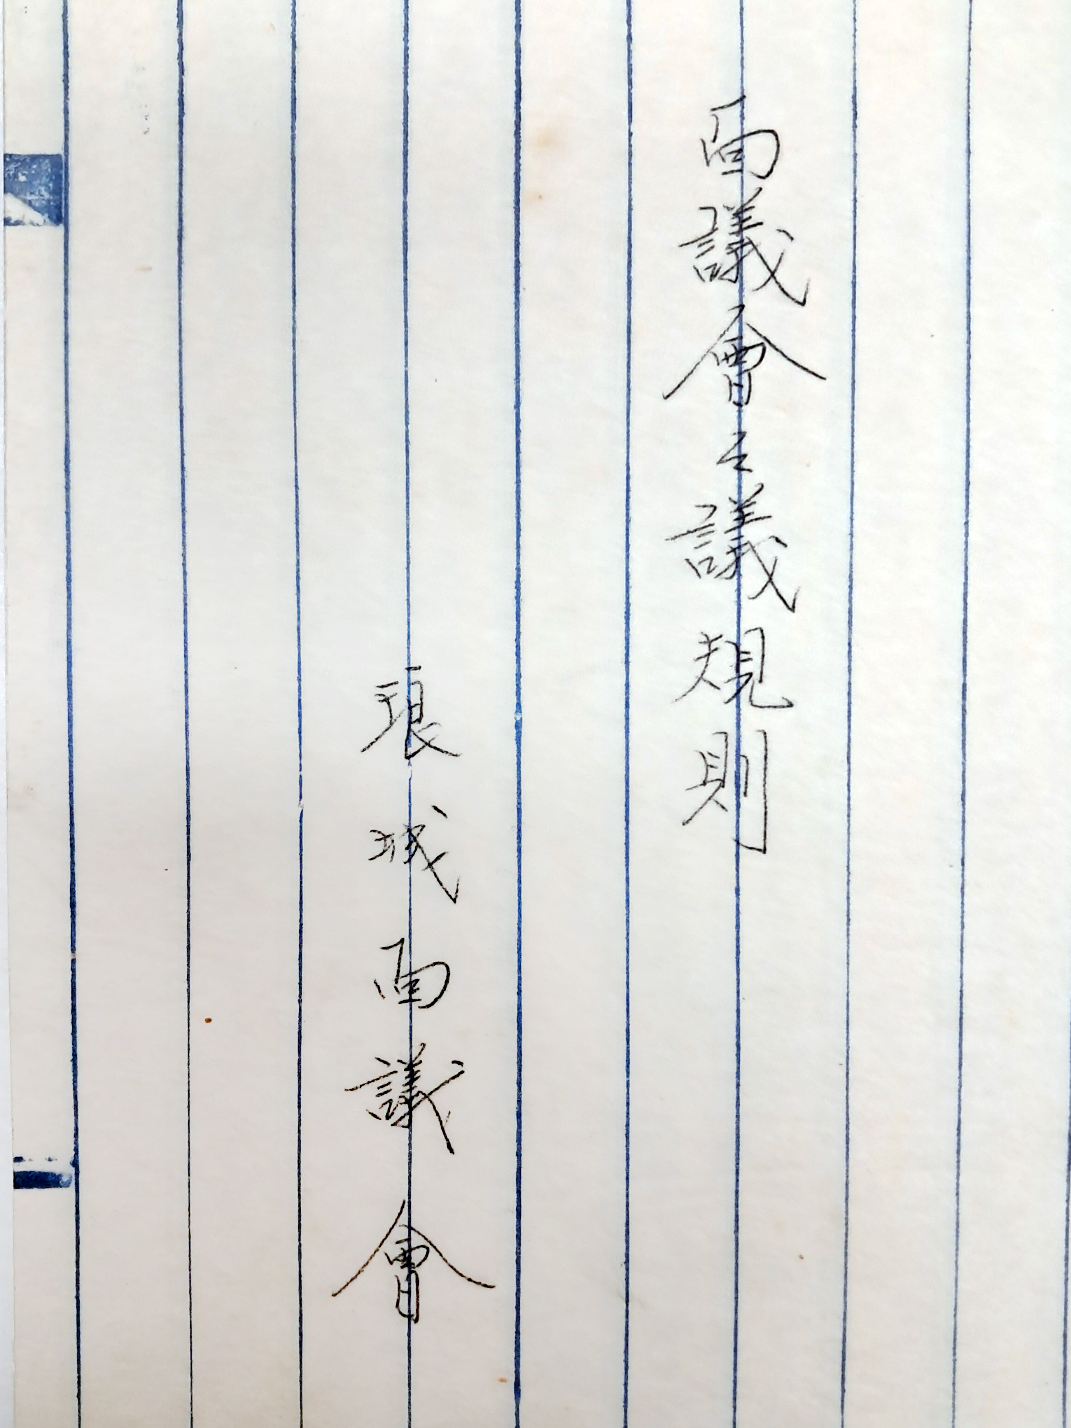 面議會々議規則
琅城面議會